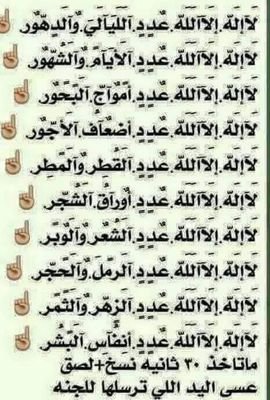 لَاإلهّ.إلَاآللهّ.عٌددِ.آلَليَآليَ.وٌآلَدِهّوٌر ☝
لَاإلهّ.إلَاآللهّ.عٌددِ.آلَأيَآمَ.وٌآلَشُهّوٌر ☝
لَاإلهّ.إلَاآللهّ.عٌددِ.أمَوٌآجّ.آلَبَحَوٌر ☝
لَاإلهّ.إلَاآللهّ.عٌددِ.أضعٌآفُ.آلَأجّوٌر ☝
لَاإلهّ.إلَاآللهّ.عٌددِ.آلَقُطِر.وٌآلَمَطِر ☝
لَاإلهّ.إلَاآللهّ.عٌددِ.أوٌرآقُ.آلَشُجّر ☝
لَاإلهّ.إلَاآللهّ.عٌددِ.آلَشُعٌر.وٌآلَوٌبَر ☝
لَاإلهّ.إلَاآللهّ.عٌددِ.آلَرمَلَ.وٌآلَحَجّر ☝
لَاإلهّ.إلَاآللهّ.عٌددِ.آلَزهّر.وٌآلَثًمَر ☝
لَاإلهّ.إلَاآللهّ.عٌددِ.أنفُآس.آلَبَشُر ☝
ماتاخذ ٣٠ ثانيه نسخ+لصق
عسى اليد اللي ترسلها للجنه